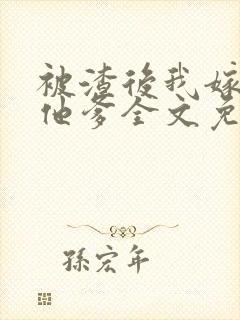 被渣後我嫁
他爹全文免
孫宏年